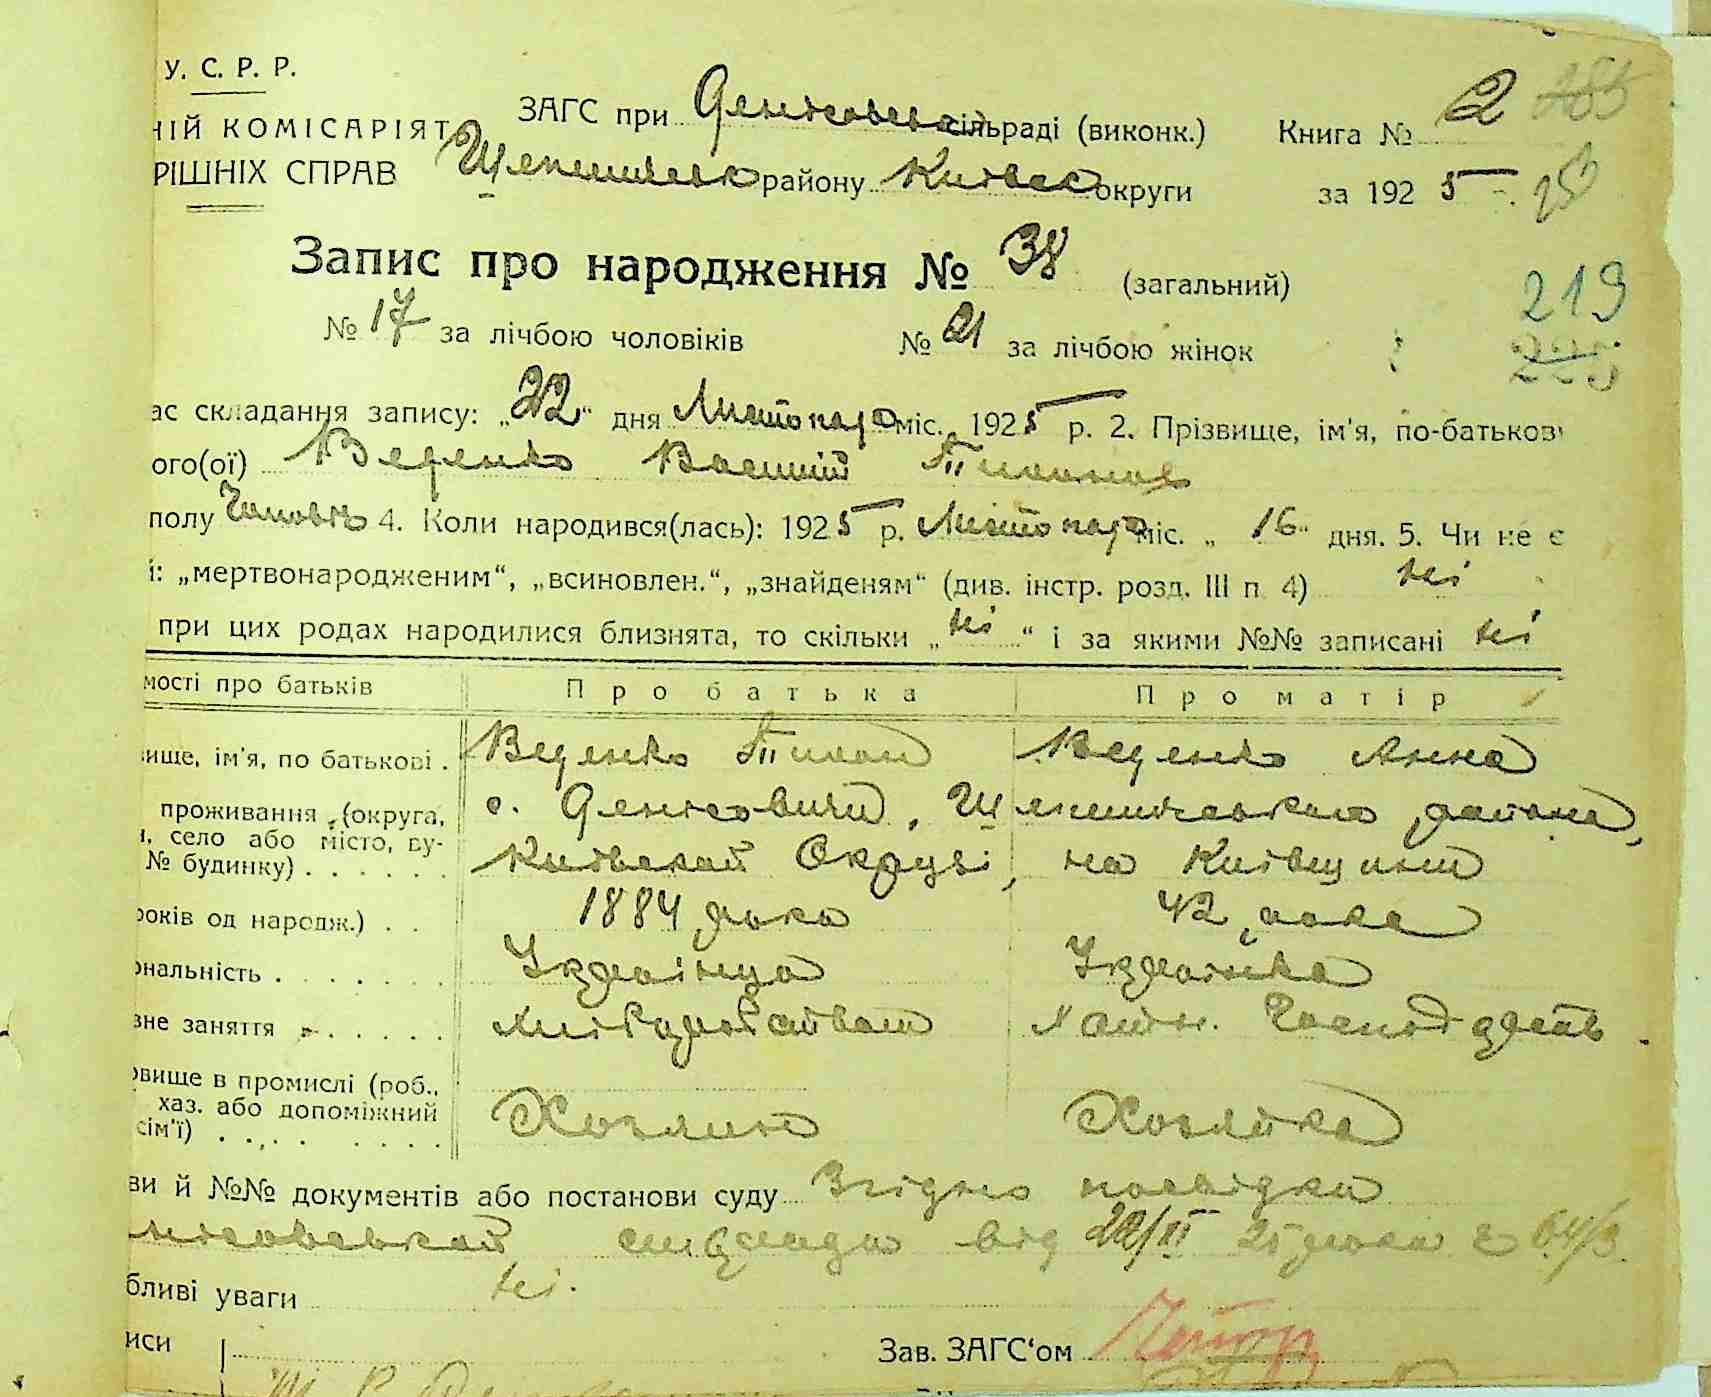 У. С. Р. Р.
НІЙ КОМІСАРІЯТ ЗАГС при Денисовській сільраді (виконк.) Книга № 2 285
РІШНІХ СПРАВ району Київсько округи за 192 5 р.
Запис про народження № 38 (загальний) 219
№ 17 за лічбою чоловіків № 21 за лічбою жінок 225
ас складання запису: „22“ дня Листопада міс. 1925 р. 2. Прізвище, ім'я, по-батькові
ого(ої) Веденко Василій Тиханов
полу Чоловіч 4. Коли народився(лась): 1925 р. Листопада міс. „16“ дня. 5. Чи не є
і: „мертвонародженим“, „всиновлен.“, „знайденям“ (див. інстр. розд. III п. 4) ні
при цих родах народилися близнята, то скільки „ні“ і за якими №№ записані ні
мості про батьків Про батька Про матір
вище, ім'я, по батькові . Веденко Тихон Веденко Анна
проживання (округа, с. Денісовичи, району,
н, село або місто, ву-
№ будинку) . . . . . . Київской Округі, на Київщині
років од народж.) . . 1884 рока 42 рока
ональність . . . . . . Українца Українка
вне заняття . . . . . Хатн. Господ
овище в промислі (роб.,
хаз. або допоміжний Хозяин Хозяйка
сім'ї) . . . . . . . .
ви й №№ документів або постанови суду Згідно посвідки
нісовськай сільради від 22/XI 25 рока 64/3
бливі уваги ні.
иси Зав. ЗАГС‘ом